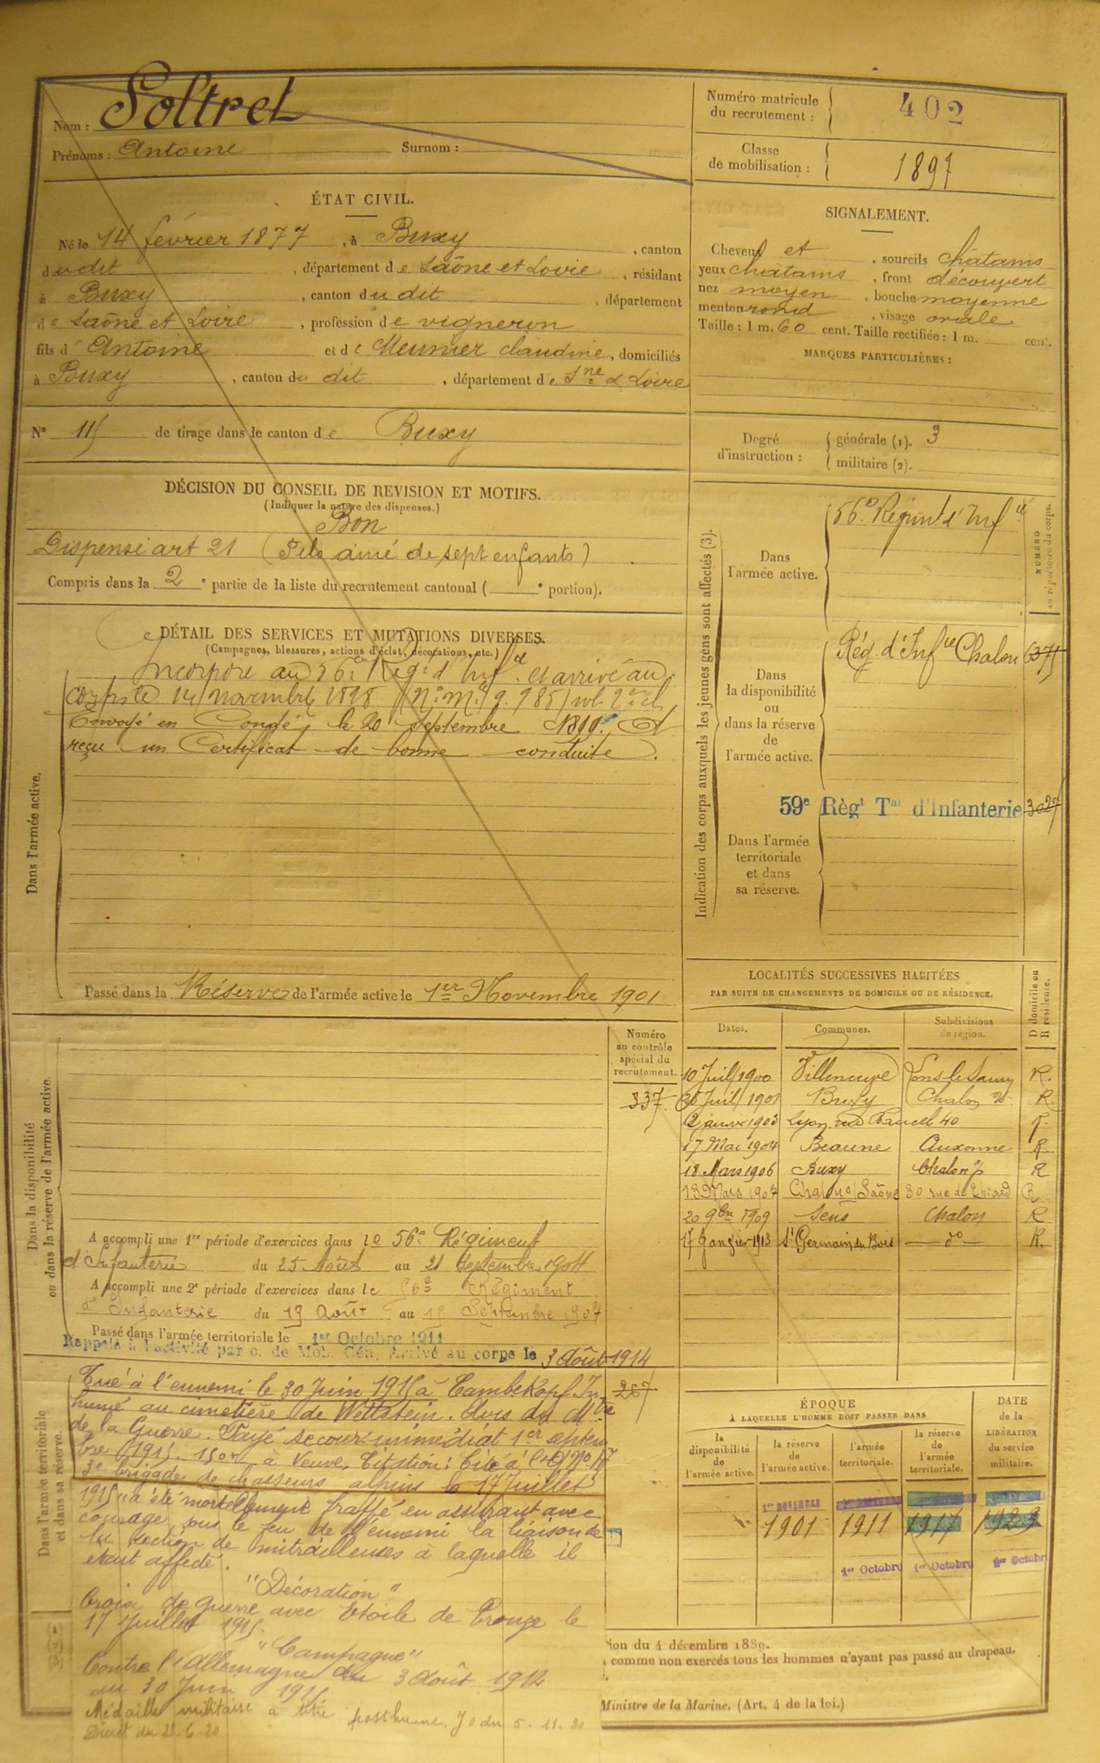 Nom : Soltret
Prénoms : Antoine Surnom :
Numéro matricule du recrutement : 402
Classe de mobilisation : 1897
ÉTAT CIVIL.
Né le 14 février 1877, à Buxy, canton
dudit, département de Saône et Loire, résidant
à Buxy, canton dudit, département
de Saône et Loire, profession de vigneron
fils d'Antoine et de Meunier Claudine, domiciliés
à Buxy, canton du dit, département de Sne & Loire
SIGNALEMENT.
Cheveux et, sourcils châtains
yeux châtains, front découvert
nez moyen, bouche moyenne
menton rond, visage ovale
Taille : 1 m. 60 cent. Taille rectifiée : 1 m. cent.
MARQUES PARTICULIÈRES :
N° 115 de tirage dans le canton de Buxy
Degré d'instruction : générale (1). 3
militaire (2).
DÉCISION DU CONSEIL DE REVISION ET MOTIFS.
(Indiquer la nature des dispenses.)
Bon
Dispensé art 21 (Fils aîné de sept enfants)
Compris dans la 2e partie de la liste du recrutement cantonal ( e portion).
DÉTAIL DES SERVICES ET MUTATIONS DIVERSES.
(Campagnes, blessures, actions d'éclat, décorations, etc.)
Dans l'armée active.
Incorporé au 56e Régt d'Infie et arrivé au
corps le 14 novembre 1898
Envoyé en Congé le 20 septembre 1899. A
reçu un Certificat de bonne conduite.
Passé dans la Réserve de l'armée active le 1er Novembre 1901
Indication des corps auxquels les jeunes gens sont affectés (3).
NUMÉRO au répertoire du corps.
Dans l'armée active.
56e Régiment d'Infie
Dans la disponibilité ou dans la réserve de l'armée active.
Rég. d'Infie Chalon
59e Règt Tal d'Infanterie
Dans l'armée territoriale et dans sa réserve.
LOCALITÉS SUCCESSIVES HABITÉES
PAR SUITE DE CHANGEMENTS DE DOMICILE OU DE RÉSIDENCE.
Dates. Communes. Subdivisions de région. D domicile ou R résidence.
10 Juil 1900 Villeneuve Lons le Saunier R.
Juil 1901 Buxy Chalon R
janvr 1903 Lyon 40
17 Mai 1904 Beaune Auxonne R
18 Mars 1906 Buxy Chalon R
Mars 1907 Chalon s/ Saône 30 rue de R
20 9bre 1909 Sens Chalon R
17 Janvier 1913 St Germain du Bois do R.
Numéro au contrôle spécial du recrutement.
337
Dans la disponibilité ou dans la réserve de l'armée active.
A accompli une 1re période d'exercices dans le 56e Régiment
d'Infanterie du 25 Août au 21 Septembre 1904
A accompli une 2e période d'exercices dans le 56e Régiment
d'Infanterie du 19 Août au 15 Septembre 1907
Passé dans l'armée territoriale le 1er Octobre 1911
Rappelé à l'activité par o. de Mob. Gén. Arrivé au corps le 3 Août 1914
267
Dans l'armée territoriale et dans sa réserve.
Tué à l'ennemi le 30 Juin 1915 à Lambekopf. In
humé au cimetière de Wettstein. Avis du Mtre
de la Guerre. Payé secours immédiat 1er Septem
bre 1915. 150f à Veuve. Citation : Cité à l'O/ No 17
3e brigade de chasseurs alpins le 17 Juillet
1915 "a été mortellement frappé en assurant avec
courage sous le feu de l'ennemi la liaison de
la section de mitrailleuses à laquelle il
était affecté.
"Décoration"
Croix de guerre avec Etoile de Bronze le
17 Juillet 1915.
"Campagne"
Contre l'Allemagne du 3 Août 1914
au 30 Juin 1915
Médaille militaire à titre posthume. J O du 5.11.20
Décret du
ÉPOQUE
À LAQUELLE L'HOMME DOIT PASSER DANS
DATE de la LIBÉRATION du service militaire.
la disponibilité de l'armée active.
la réserve de l'armée active.
l'armée territoriale.
la réserve de l'armée territoriale.
1er NOVEMBRE
1901 1911 1917 1923
1er Octobre 1er Octobre 1er Octobre
ion du 4 décembre 1889.
comme non exercés tous les hommes n'ayant pas passé au drapeau.
Ministre de la Marine. (Art. 4 de la loi.)